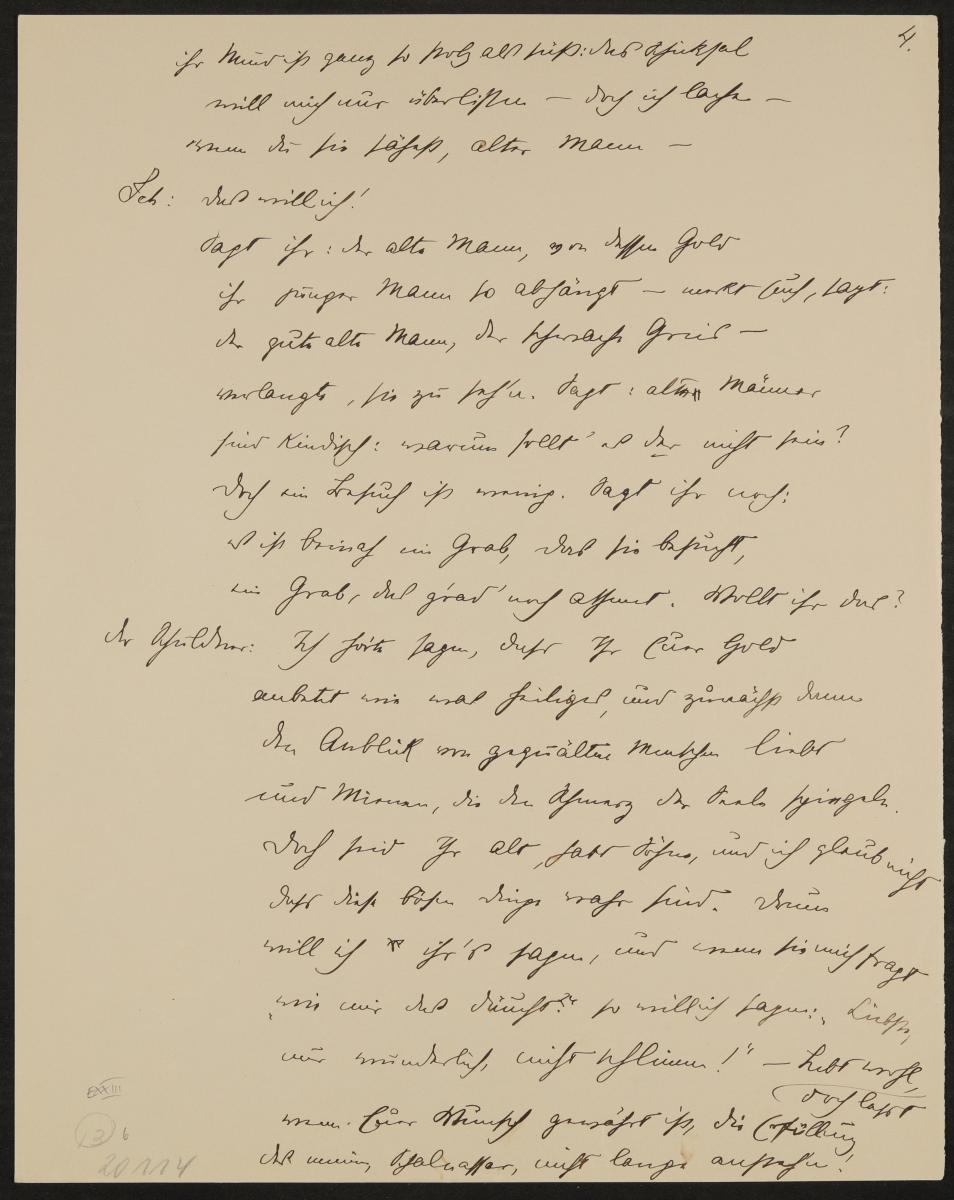 4.
ihr Mund ist ganz so stolz als süß: das Schicksal
will mich nur überlisten — doch ich lache —
wenn du sie sähest, alter Mann —
Sch: Das will ich!
Sagt ihr: der alte Mann, von dessen Gold
ihr junger Mann so abhängt — merkt Euch, sagt:
der gute alte Mann, der schwache Greis —
verlangte, sie zu seh'n. Sagt: alte Männer
sind kindisch: warum sollt' es der nicht sein?
Doch ein Besuch ist wenig. Sagt ihr noch:
es ist beinah ein Grab, das sie besucht,
ein Grab, das g'rad' noch athmet. Wollt ihr das?
der Schuldner: Ich hörte sagen, dass Ihr Euer Gold
anbetet wie was heiliges, und zunächst dann
den Anblick von gequälten Menschen liebt
und Mienen, die den Schmerz der Seele spiegeln.
Doch seid Ihr alt, habt Söhne, und ich glaub nicht
dass diese bösen Dinge wahr sind. Drum
will ich ihr's sagen, und wenn sie mich fragt
„wie mir das däucht?" so will ich sagen: „Liebste,
nur wunderlich, nicht schlimm!" — Lebt wohl,
doch lasst
wenn Euer Wunsch gewährt ist, die Erfüllung
des meinen, Schalnassar, nicht lange ansteh'n!
XXIII
3 b
20114